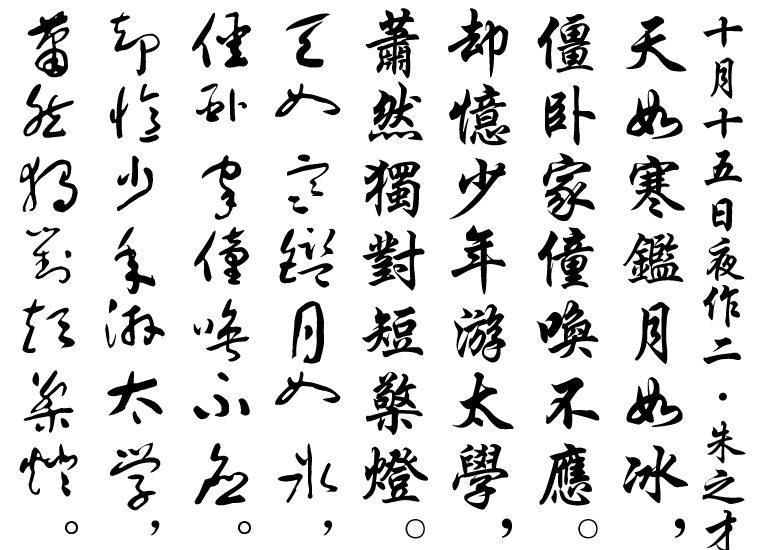 十月十五日夜作二・朱之才
天如寒鑑月如冰，
僵卧家僮喚不應。
却憶少年游太學，
蕭然獨對短檠燈。
天如寒鑑月如冰，
僵卧家僮喚不應。
却憶少年游太学，
蕭然獨對短檠燈。